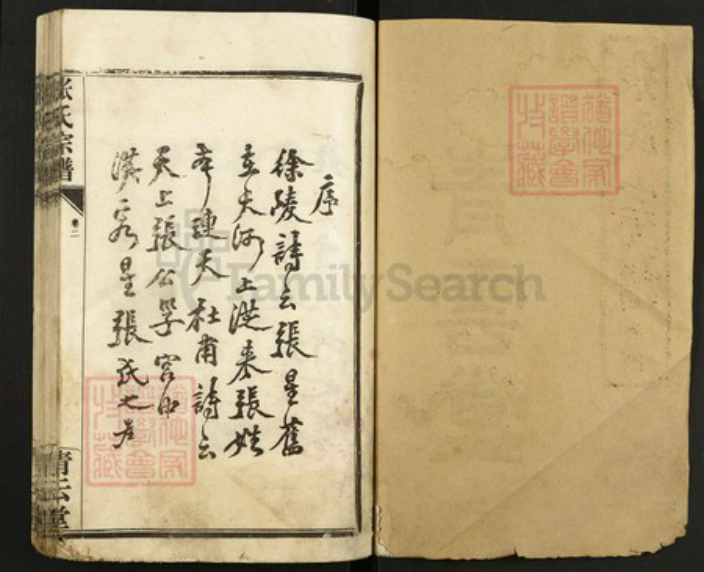 猶他家
譜學會
特藏
序
徐陵詩云張星舊
在天河上從来張姓
本連天杜甫詩云
天上張公子宮中
漢客星張氏之
張氏宗譜
卷二
青云堂
猶他家
譜學會
特藏
FamilySearch